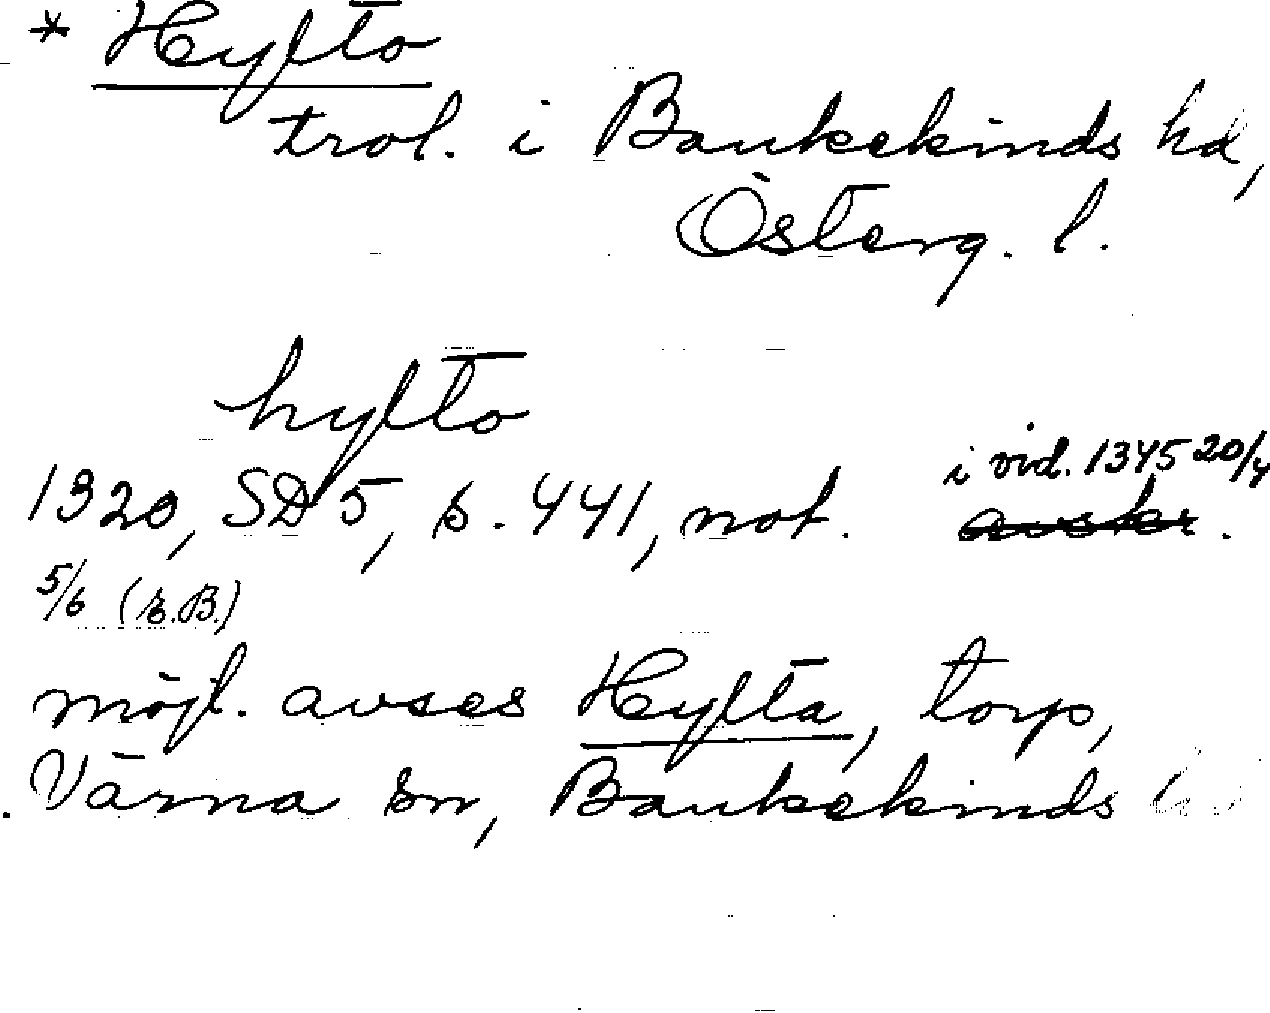 * Hyfto
trol. i Bankekinds hd,
Österg. l.
hyfto
i vid. 1345 20/4
1320, SD 5, s. 441, not. avskr.
5/6 (E.B.)
möjl. avses Hyfta, torp,
Värna sn, Bankekinds hd